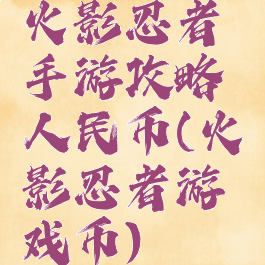 火影忍者
手游攻略
人民币(火
影忍者游
戏币)